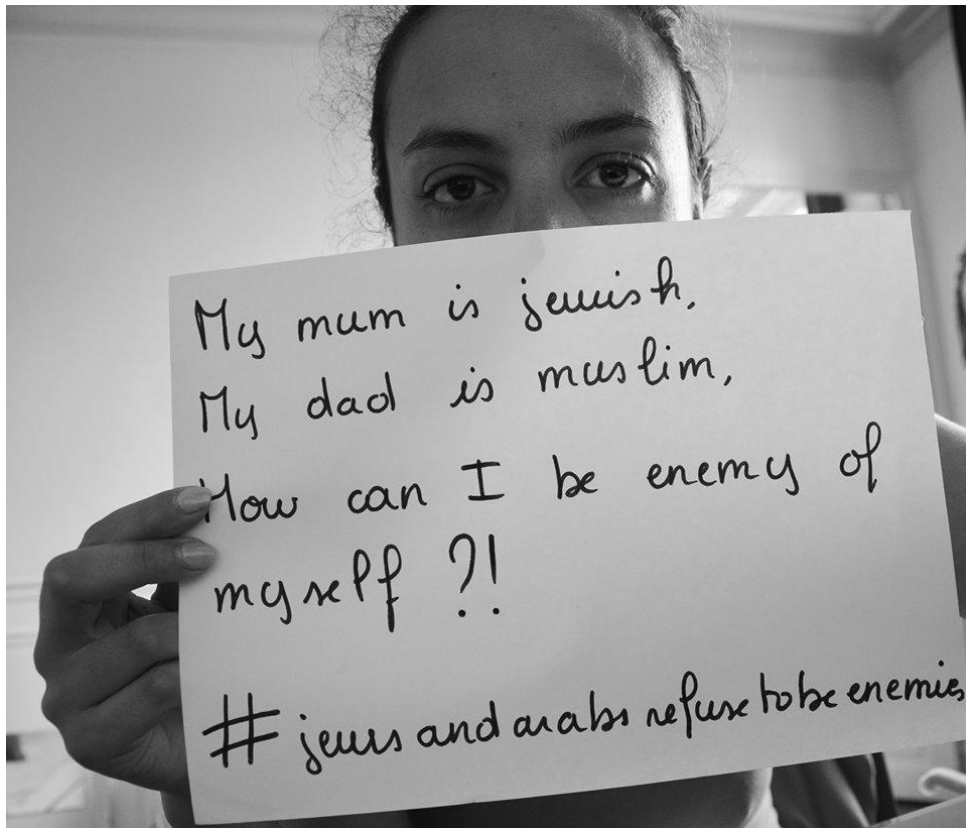 My mum is jewish,
My dad is muslim,
How can I be enemy of
myself ?!
# jews and arabs refuse to be enemies